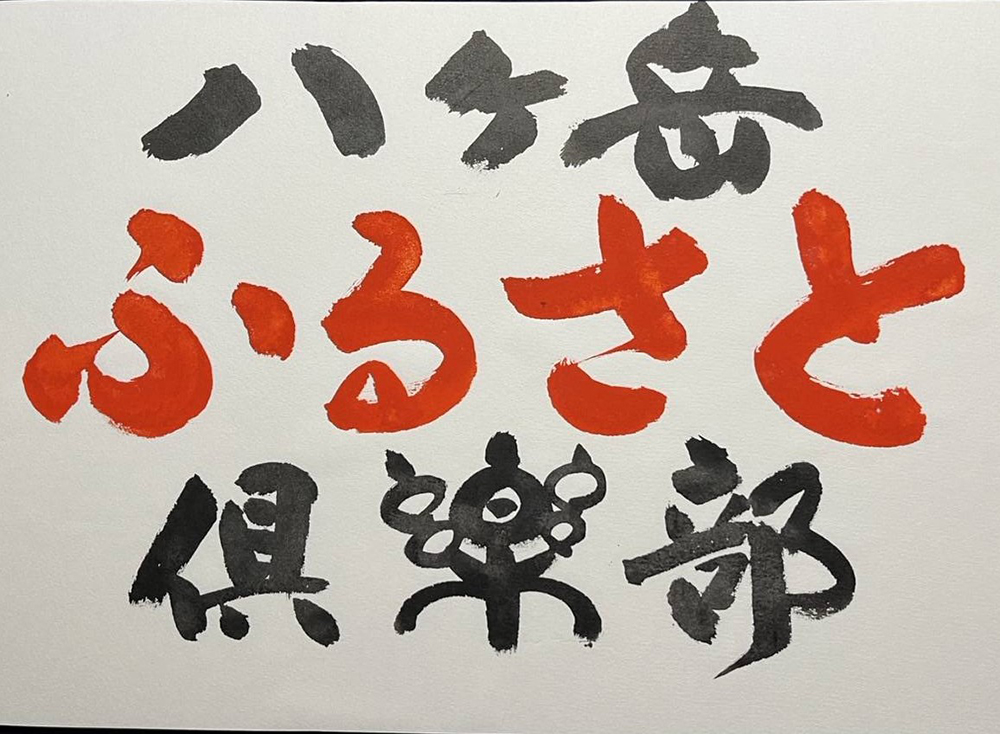 八ヶ岳
ふるさと
倶樂部